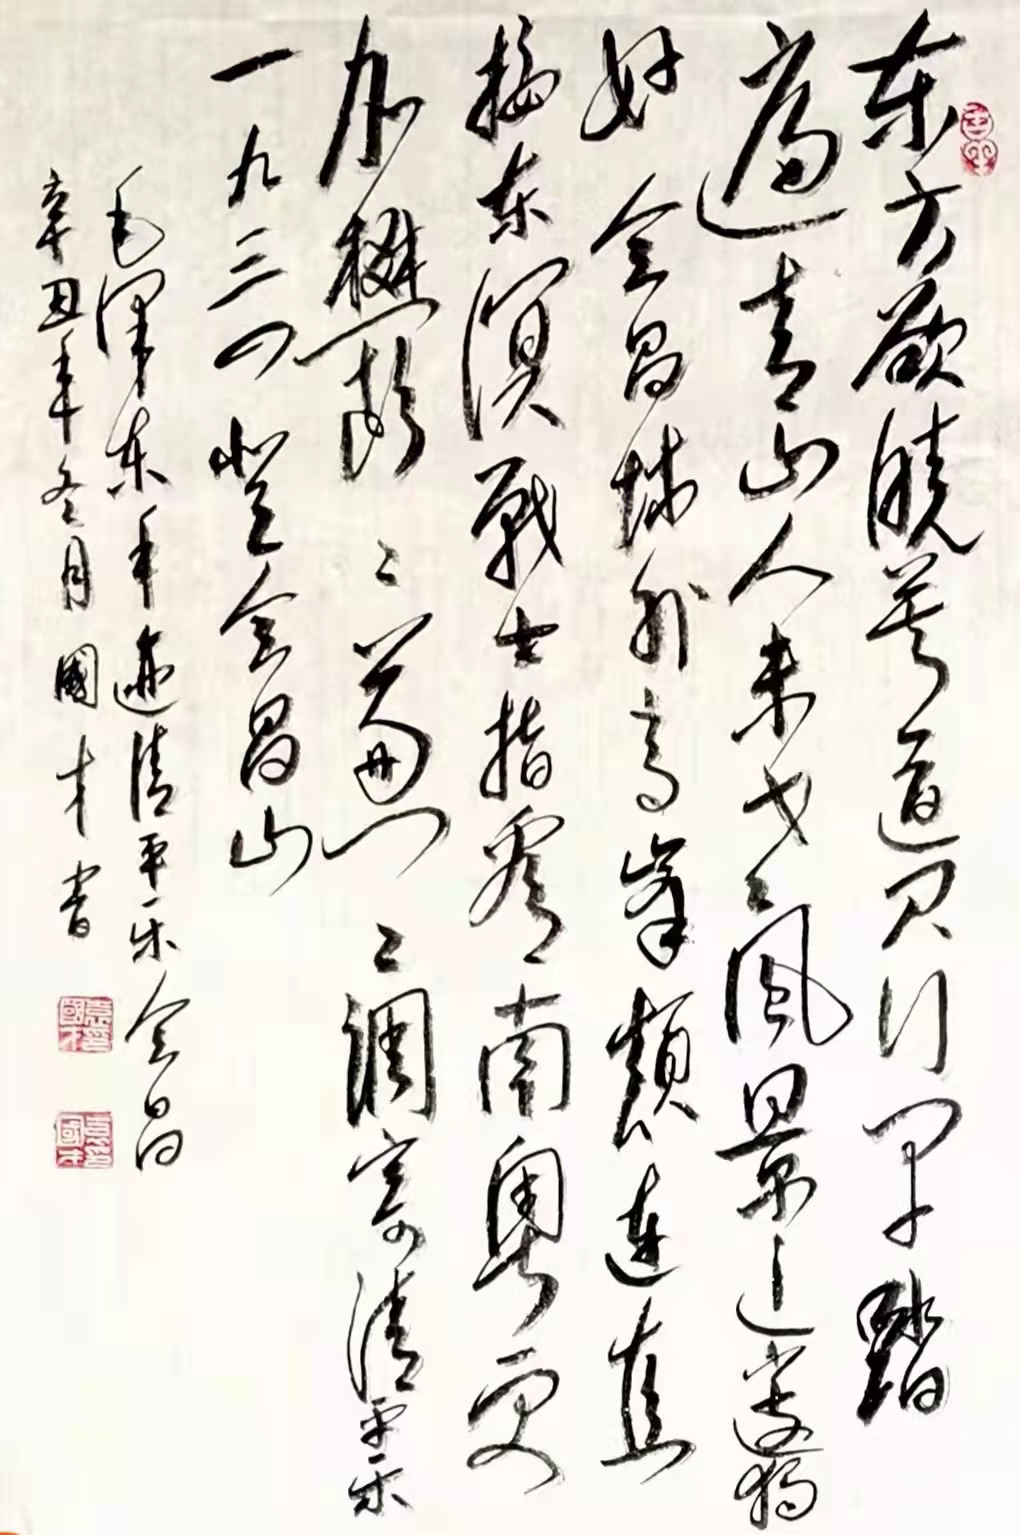 东方欲曉莫道君行早踏
遍青山人未老风景这边独
好会昌城外高峯颠连直
接东溟战士指看南粤更
加鬱〻葱〻调寄清平乐
一九三四登会昌山
毛泽东手迹清平乐会昌
辛丑年冬月國才书